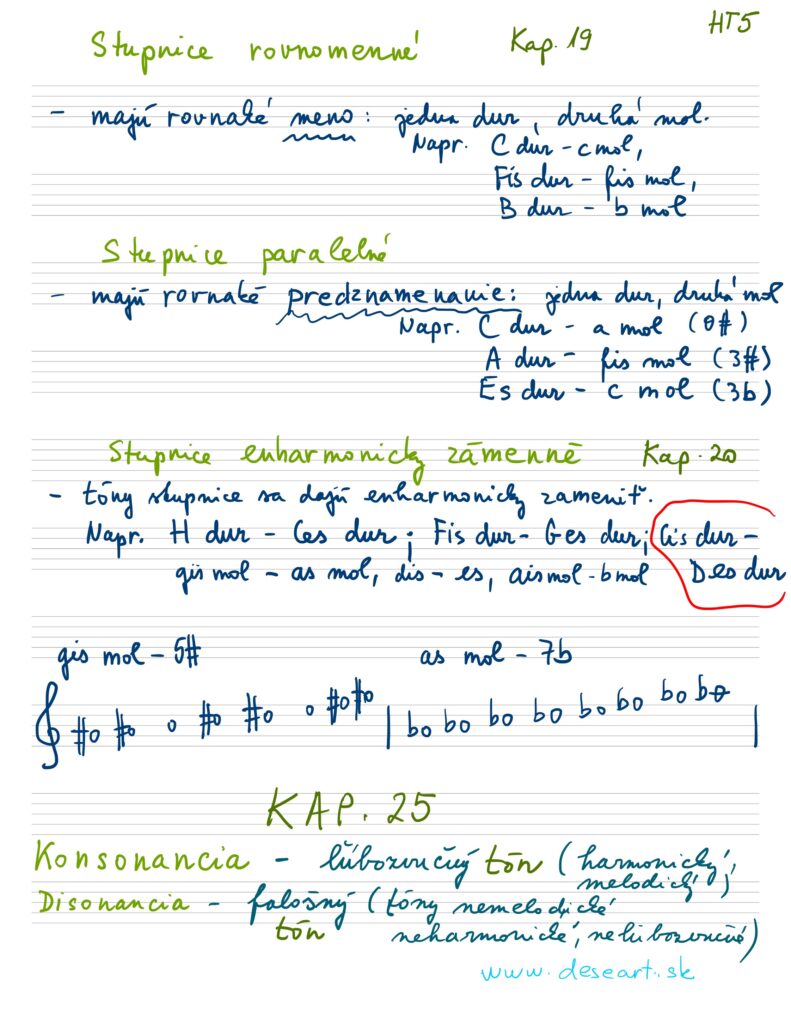 HT5
Stupnice rovnomenné Kap. 19
- majú rovnaké meno: jedna dur, druhá mol.
Napr. C dur - c mol,
Fis dur - fis mol,
B dur - b mol
Stupnice paralelné
- majú rovnaké predznamenanie: jedna dur, druhá mol
Napr. C dur - a mol (0#)
A dur - fis mol (3#)
Es dur - c mol (3b)
Stupnice enharmonicky zámenné Kap. 20
- tóny stupnice sa dajú enharmonicky zameniť.
Napr. H dur - Ces dur; Fis dur - Ges dur; Cis dur -
gis mol - as mol, dis - es, ais mol - b mol Des dur
gis mol - 5# as mol - 7b
KAP. 25
Konsonancia - ľúbozvučný tón (harmonický,
melodický)
Disonancia - falošný (tóny nemelodické
tón neharmonické, neľúbozvučné)
www.deseart.sk